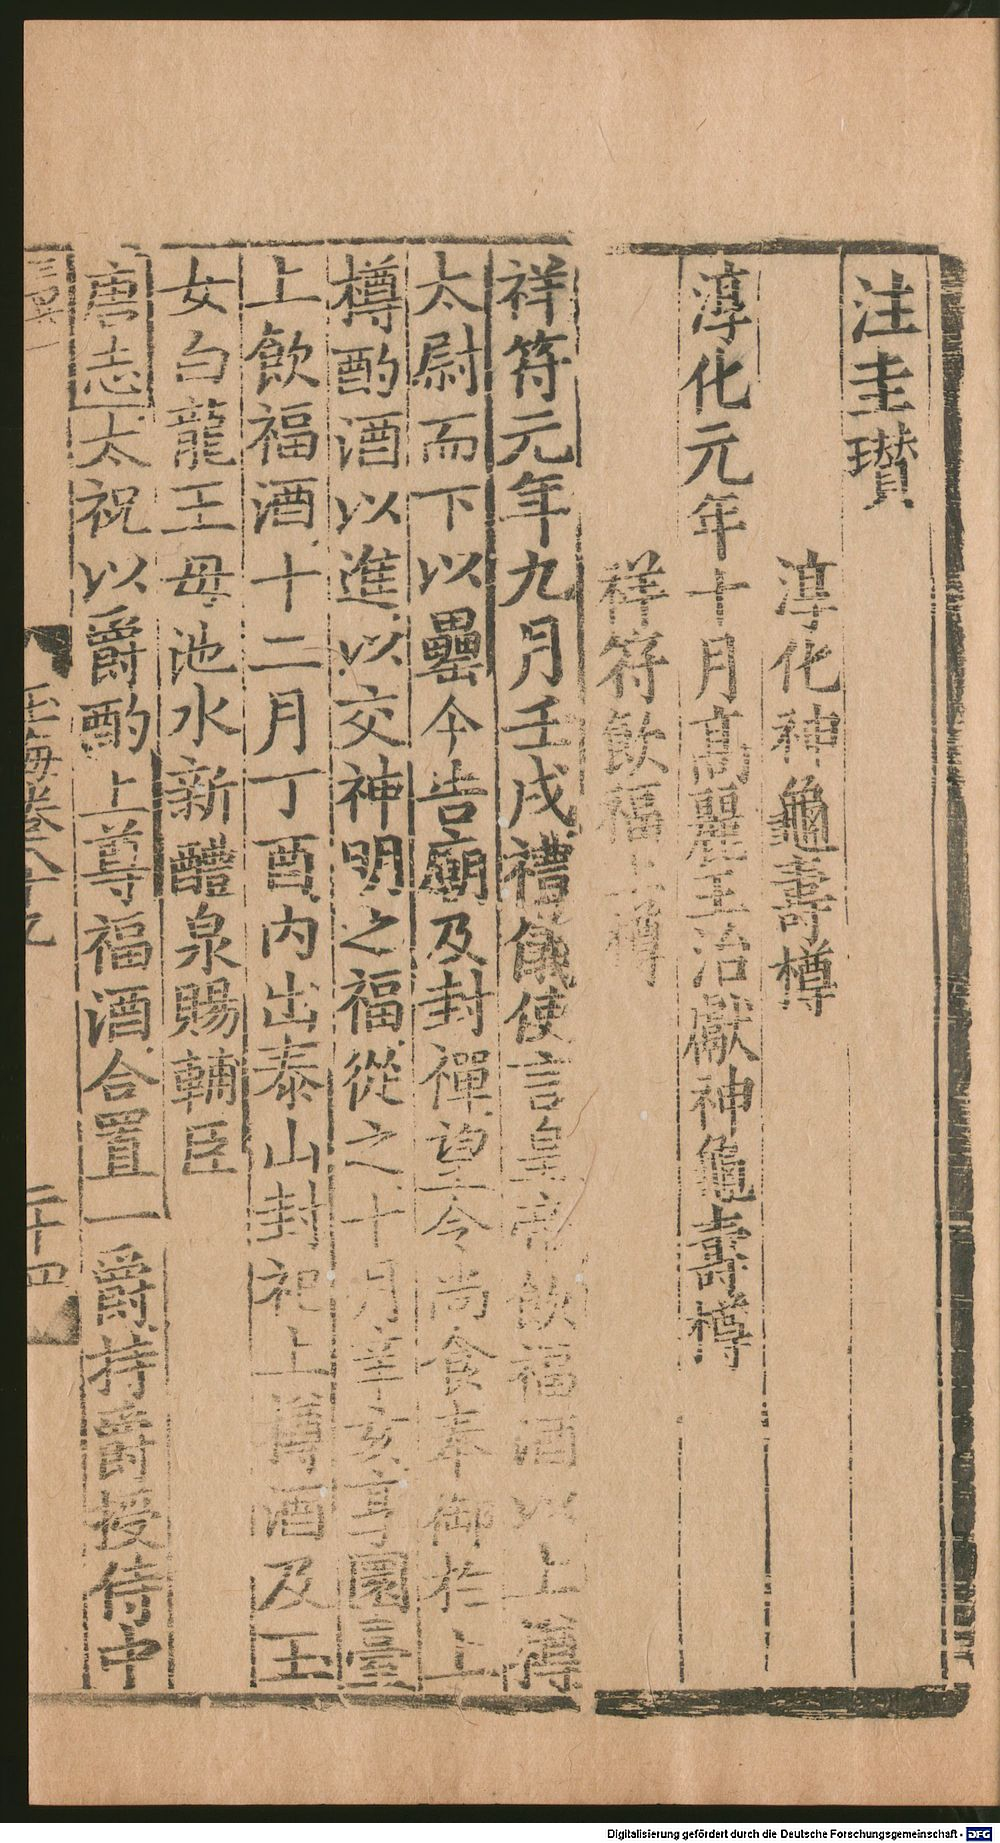 注圭瓚
淳化神龜壽樽
淳化元年十月高麗王治獻神龜壽樽
祥符飲福上樽
祥符元年九月壬戌禮儀使言皇帝飲福酒以上樽
太尉而下以罍今告廟及封禪望令尚食奉御於上
樽酌酒以進以交神明之福從之十月辛亥享圜臺
上飲福酒十二月丁酉內出泰山封祀上樽酒及玉
女白龍王母池水新醴泉賜輔臣
唐志太祝以爵酌上尊福酒合置一爵持爵授侍中
玉海卷八十九
二十四
Digitalisierung gefördert durch die Deutsche Forschungsgemeinschaft - DFG